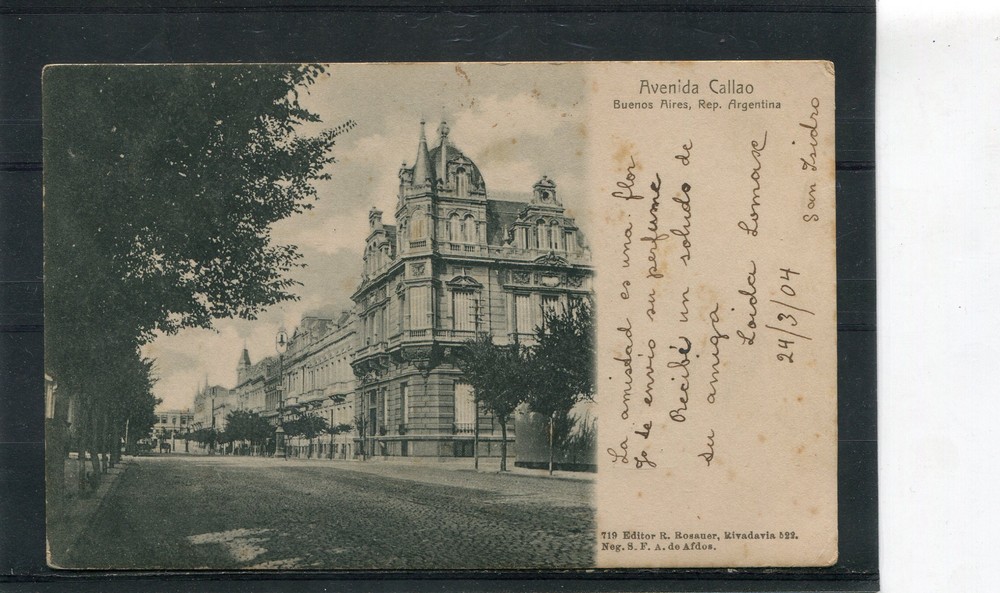 Avenida Callao
Buenos Aires, Rep. Argentina
La amistad es una flor
Yo te envio su perfume
Recibé un saludo de
su amiga
Loida Lomax
24/3/04
San Isidro
719 Editor R. Rosauer, Rivadavia 522.
Neg. S. F. A. de Afdos.